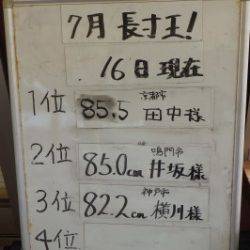 7月 長寸王!
16日 現在
京都市
1位 85.5 田中様
鳴門市
2位 85.0cm 井坂様
神戸市
3位 82.2cm 横川様
4位